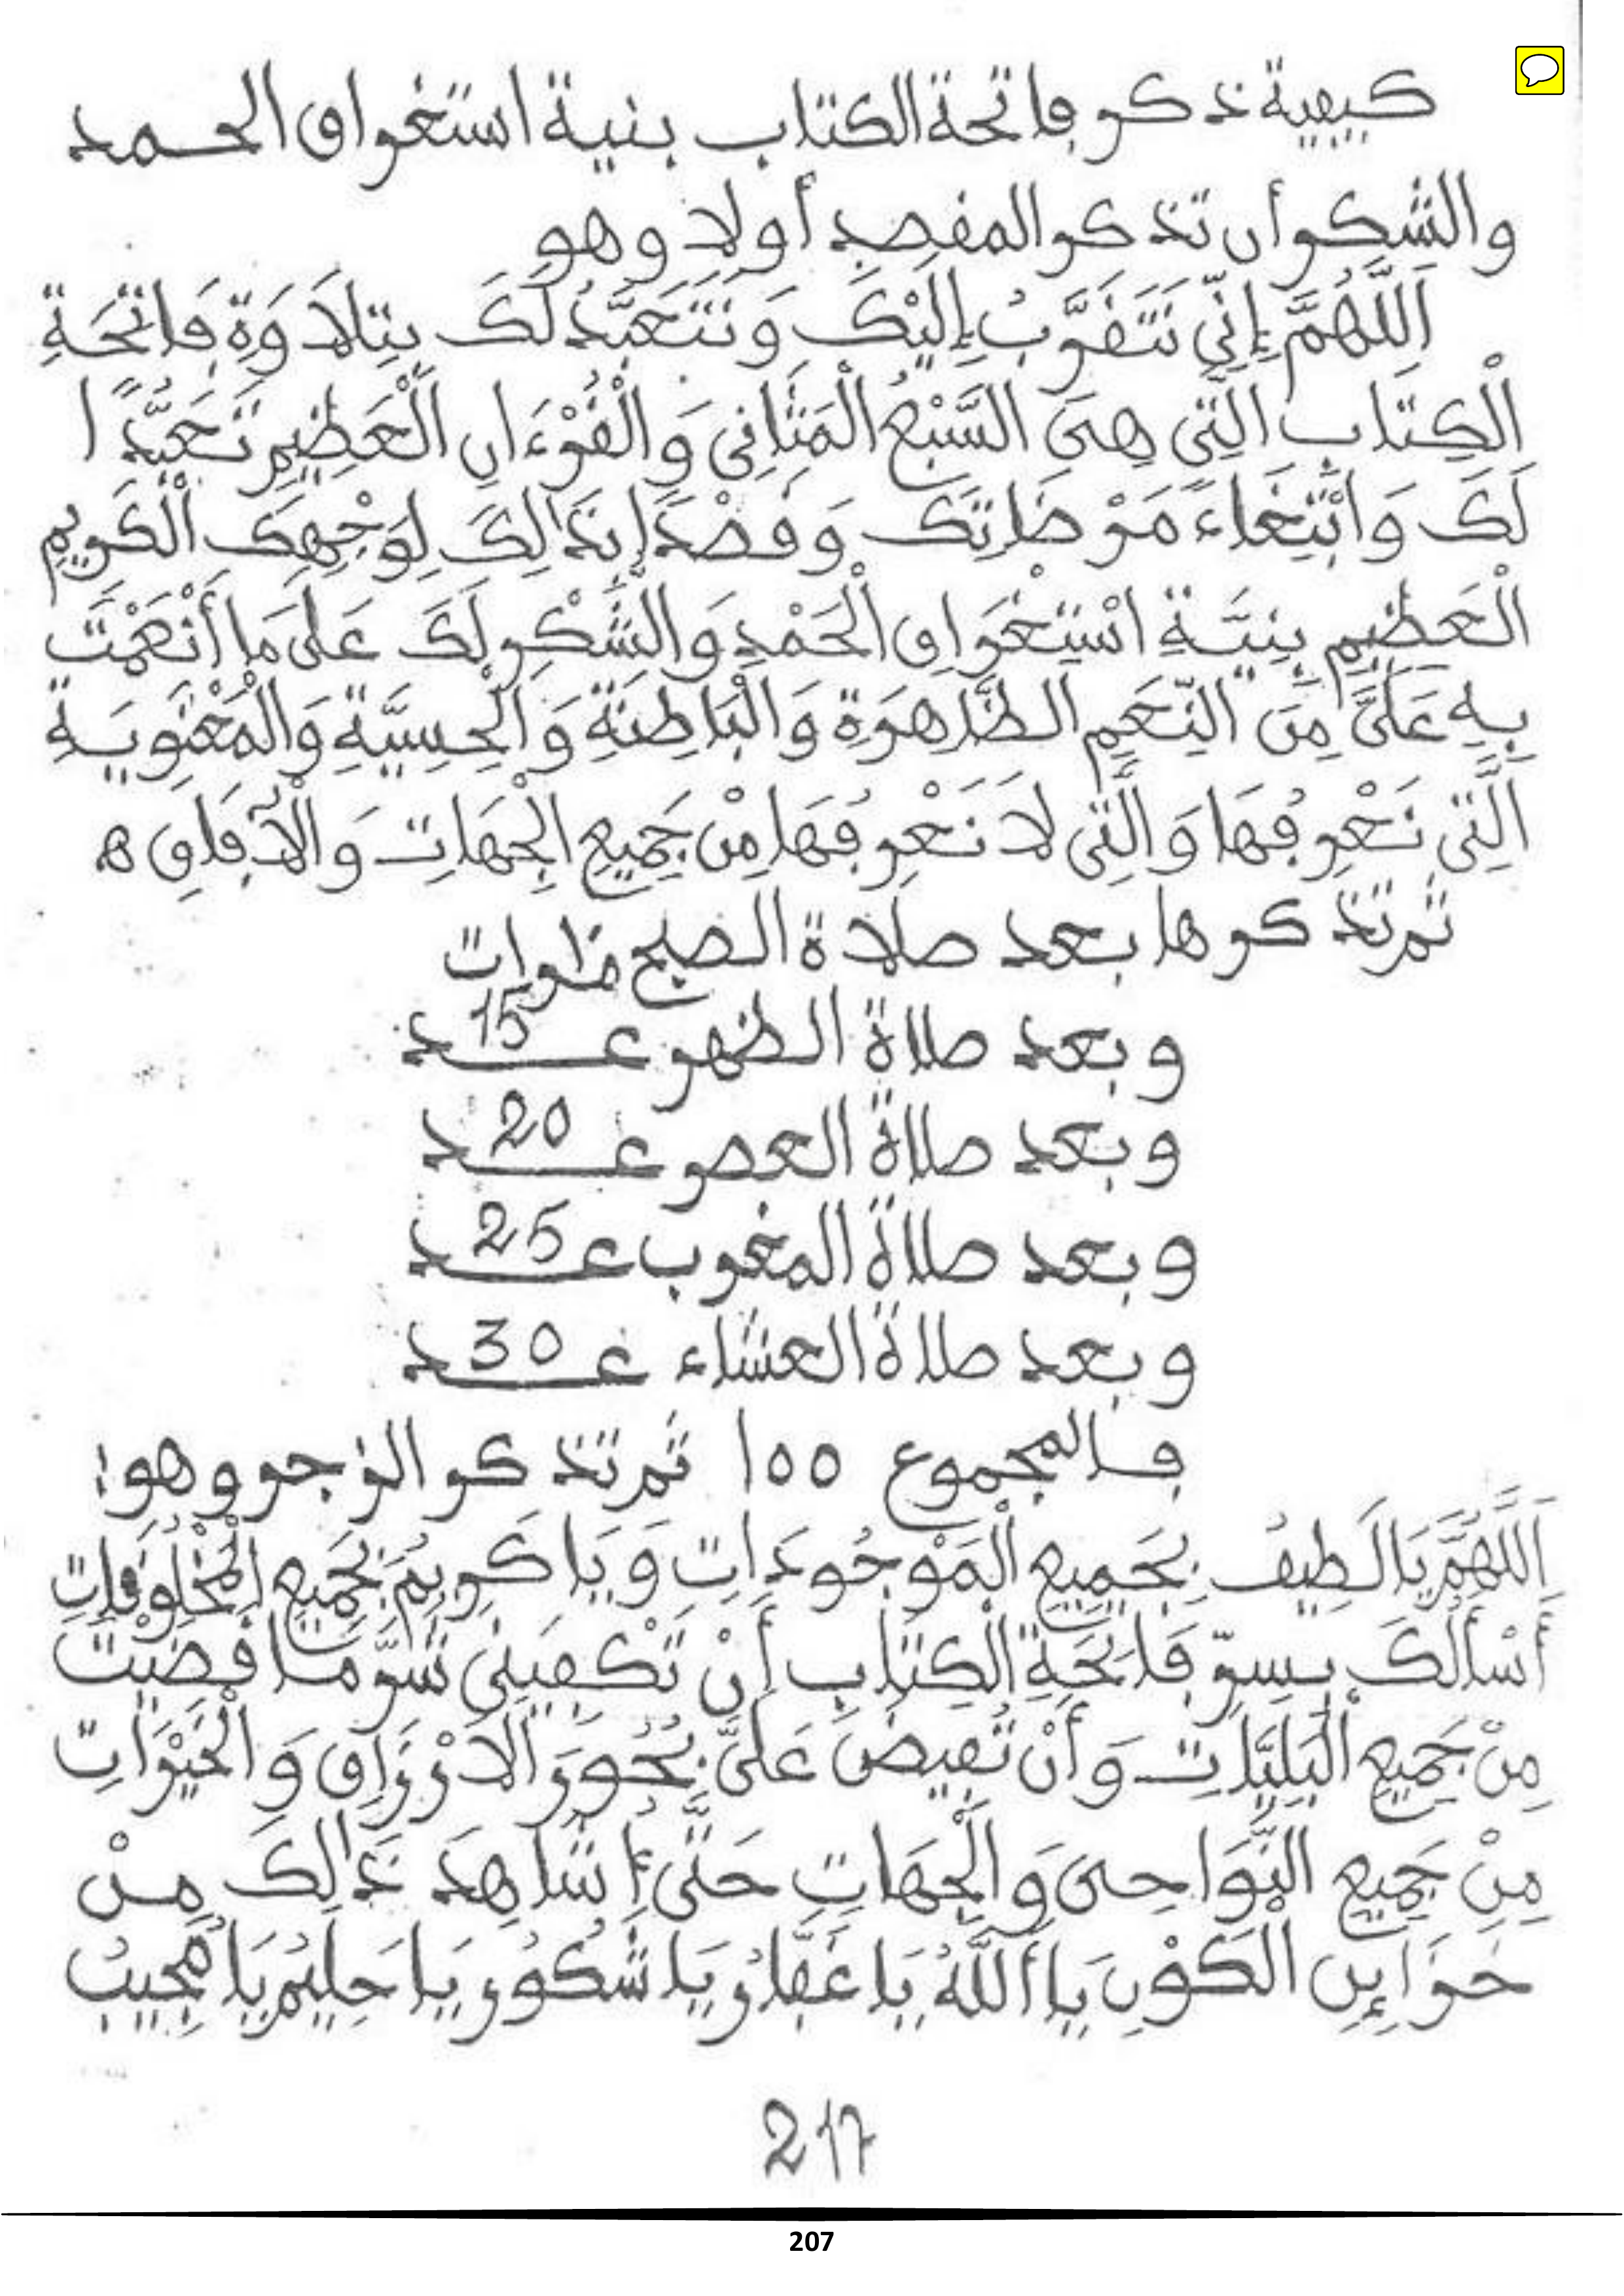 كيفية ذكر فاتحة الكتاب بنية استغراق الحمد
والشكر أن تذكر المقصد أولا وهو
اَللَّهُمَّ إِنِّي نَتَقَرَّبُ إِلَيْكَ وَنَتَعَبَّدُ لَكَ بِتِلَاوَةِ فَاتِحَةِ
الْكِتَابِ الَّتِي هِيَ السَّبْعُ الْمَثَانِي وَالْقُرْءَانِ الْعَظِيمِ تَعَبُّدًا
لَكَ وَابْتِغَاءَ مَرْضَاتِكَ وَقَصْدًا بِذَالِكَ لِوَجْهِكَ الْكَرِيمِ
الْعَظِيمِ بِنِيَّةِ اسْتِغْرَاقِ الْحَمْدِ وَالشُّكْرِ لَكَ عَلَى مَا أَنْعَمْتَ
بِهِ عَلَيَّ مِنَ النِّعَمِ الظَّاهِرَةِ وَالْبَاطِنَةِ وَالْحِسِّيَّةِ وَالْمَعْنَوِيَةِ
الَّتِي نَعْرِفُهَا وَالَّتِي لَا نَعْرِفُهَا مِنْ جَمِيعِ الْجِهَاتِ وَالْآفَاقِ ه
ثم تذكرها بعد صلاة الصبح
وبعد صلاة الظهر عـ15ـد
وبعد صلاة العصر عـ20ـد
وبعد صلاة المغرب عـ25ـد
وبعد صلاة العشاء عـ30ـد
فالمجموع 100 ثم تذكر الزجر وهو:
اَللَّهُمَّ يَا لَطِيفُ بِجَمِيعِ الْمَوْجُودَاتِ وَيَا كَرِيمُ بِجَمِيعِ الْمَخْلُوقَاتِ
أَسْأَلُكَ بِسِرِّ فَاتِحَةِ الْكِتَابِ أَنْ تَكْفِيَنِي شَرَّ مَا قَضَيْتَ
مِنْ جَمِيعِ الْبَلِيَّاتِ وَأَنْ تُفِيضَ عَلَيَّ بُحُورَ الَارْزَاقِ وَالْخَيْرَاتِ
مِنْ جَمِيعِ النَّوَاحِي وَالْجِهَاتِ حَتَّى أُشَاهِدَ ذَالِكَ مِنْ
خَزَائِنِ الْكَوْنِ يَا أَللَّهُ يَا غَفَّارُ يَا شَكُورُ يَا حَلِيمُ يَا مُجِيبُ
217
207